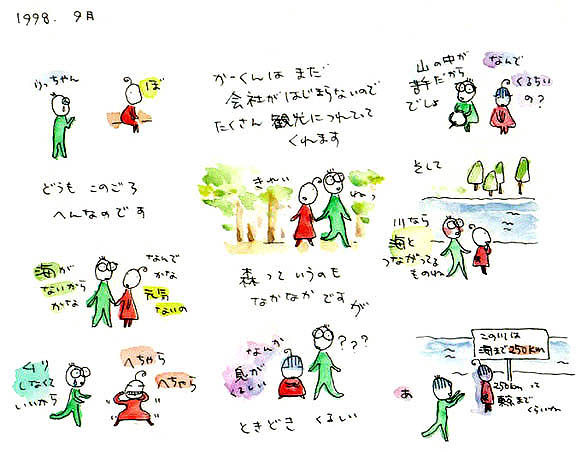 1998. 9月
りっちゃん
ぼ
どうも このごろ
へんなのです
海が
ないから
かな
なんで
かな
元気
ないの
ムリ
しなくて
いいから
へちゃら
へちゃら
がーくんは まだ
会社がはじまらないので
たくさん 観光につれてって
くれます
きれい
ねっ
森って いうのも
なかなか ですが
なんか
息が
くるしい
???
ときどき くるしい
山の中が
静だから
でしょ
なんで
くるちい
の?
そして
川なら
海と
つながってる
ものね
この川は
海まで250km
あ
250kmって
東京まで
くらいね